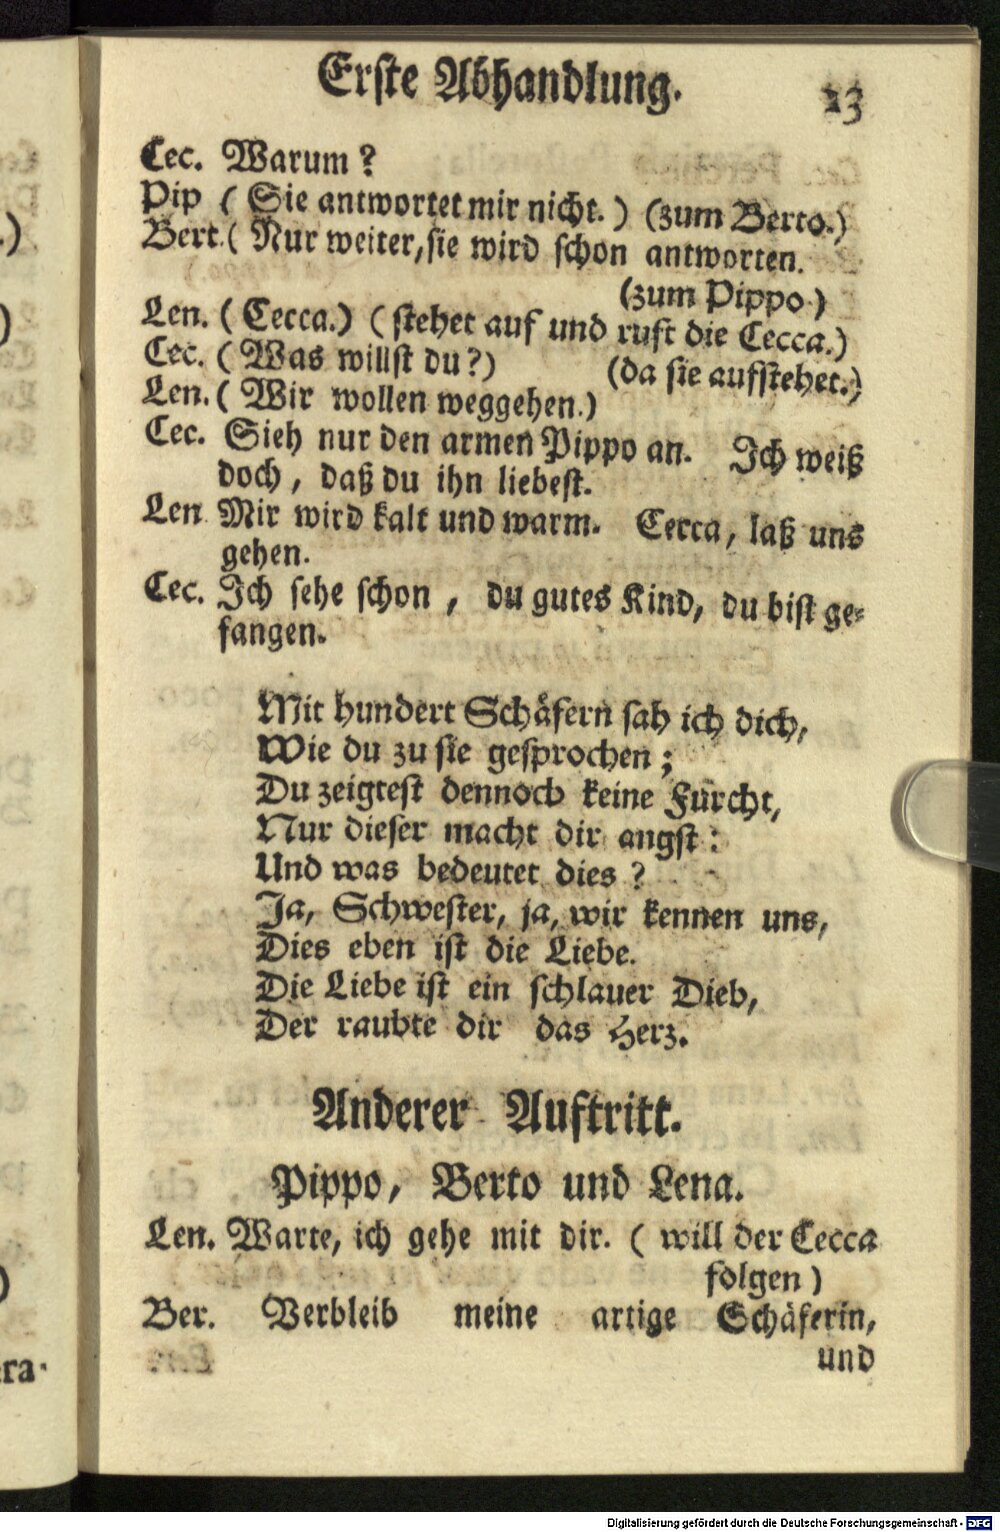 Erste Abhandlung. 23
Cec. Warum?
Pip ( Sie antwortet mir nicht. ) (zum Berto.)
Bert. ( Nur weiter, sie wird schon antworten.
(zum Pippo.)
Len. ( Cecca.) ( stehet auf und ruft die Cecca.)
Cec. ( Was willst du?) (da sie aufstehet.)
Len. ( Wir wollen weggehen.)
Cec. Sieh nur den armen Pippo an. Ich weiß
doch, daß du ihn liebest.
Len. Mir wird kalt und warm. Cecca, laß uns
gehen.
Cec. Ich sehe schon, du gutes Kind, du bist ge-
fangen.
Mit hundert Schäfern sah ich dich,
Wie du zu sie gesprochen;
Du zeigtest dennoch keine Furcht,
Nur dieser macht dir angst:
Und was bedeutet dies?
Ja, Schwester, ja, wir kennen uns,
Dies eben ist die Liebe.
Die Liebe ist ein schlauer Dieb,
Der raubte dir das Herz.
Anderer Auftritt.
Pippo, Berto und Lena.
Len. Warte, ich gehe mit dir. ( will der Cecca
folgen )
Ber. Verbleib meine artige Schäferin,
und
ra-
Digitalisierung gefördert durch die Deutsche Forschungsgemeinschaft - DFG